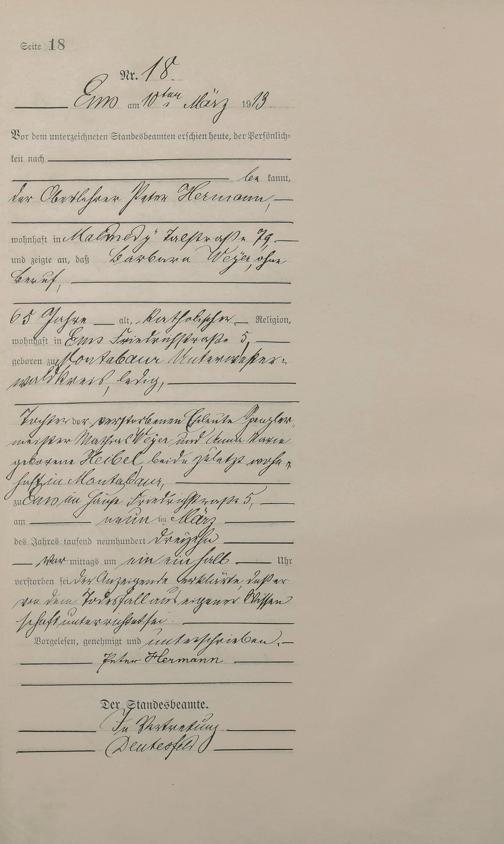 Seite 18
Nr. 18
Ems am 10ten März 1913
Vor dem unterzeichneten Standesbeamten erschien heute, der Persönlich-
keit nach
be kannt,
der Oberlehrer Peter Hermann,
wohnhaft in Malmedy Talstraße 79,
und zeigte an, daß Barbara Weyer, ohne
Beruf,
65 Jahre alt, katholischer Religion,
wohnhaft in Ems Friedrichstraße 5,
geboren zu Montabaur Unterwester-
waldkreis, ledig,
Tochter der verstorbenen Eheleute Spengler-
meister Mathias Weyer und Anna Maria
geborene Heibel, beide zuletzt wohn-
haft in Montabaur,
zu Ems im Hause Friedrichstraße 5,
am neun ten März
des Jahres tausend neunhundert dreizehn
vor mittags um ein ein halb Uhr
verstorben sei. Der Anzeigende erklärte, daß er
von dem Todesfall aus eigener Wissen
schaft unterrichtet sei.
Vorgelesen, genehmigt und unterschrieben.
Peter Hermann
Der Standesbeamte.
In Vertretung